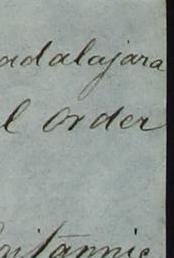 adalajara
l order
itannic